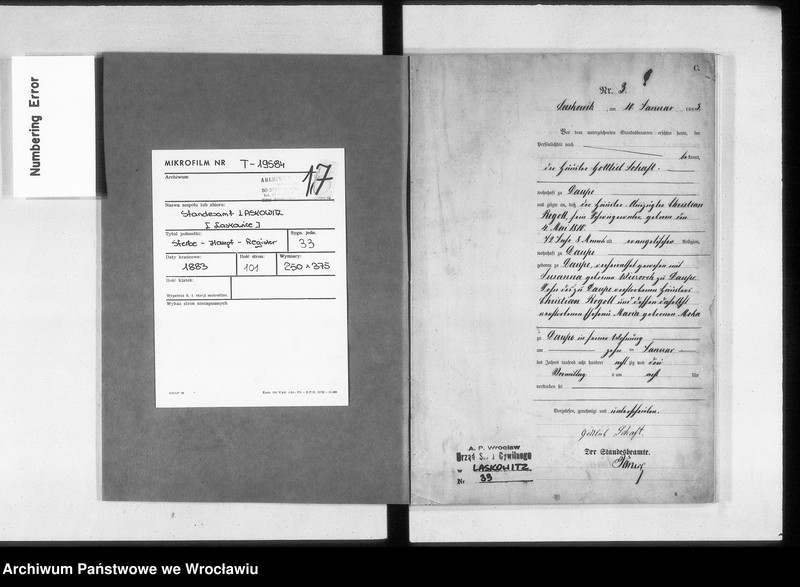 Numbering Error
MIKROFILM NR T-19584
Archiwum
17
Nazwa zespołu lub zbioru:
Standesamt LASKOWITZ
[Laskowice]
Tytuł jednostki:
Sygn. jedn.
Sterbe - Haupt - Register
33
Daty krańcowe:
Ilość stron:
Wymiary:
1883
101
250 x 375
Ilość klatek:
Wypełnia k. t. stacji mikrofilm.
Wykaz stron nieznajomych
C.
Nr. 3.
Laskowitz, am 11. Januar 1883.
Vor dem unterzeichneten Standesbeamten erschien heute, der
Persönlichkeit nach
bekannt,
der Häusler Gottlieb Schaft.
wohnhaft zu Daupe
und zeigte an, daß der Häusler Auszügler Christian
Regoll, sein Schwiegervater geboren den
4. Mai 1810.
72 Jahr 8 Monate alt evangelischer Religion,
wohnhaft zu Daupe
geboren zu Daupe, verheirathet gewesen mit
Susanna geborenen zu Daupe.
Sohn des zu Daupe verstorbenen Häuslers
Christian Regoll und dessen daselbst
verstorbenen Ehefrau Maria geborenen Moka
zu Daupe in seiner Wohnung
am zehn ten Januar
des Jahres tausend acht hundert acht zig und drei
Vormittag s um acht Uhr
verstorben sei
Vorgelesen, genehmigt und unterschrieben.
Gottlieb Schaft.
Der Standesbeamte.
A. P. Wrocław
Urząd S Cywilnego
w LASKOWITZ.
Nr 33
Archiwum Państwowe we Wrocławiu